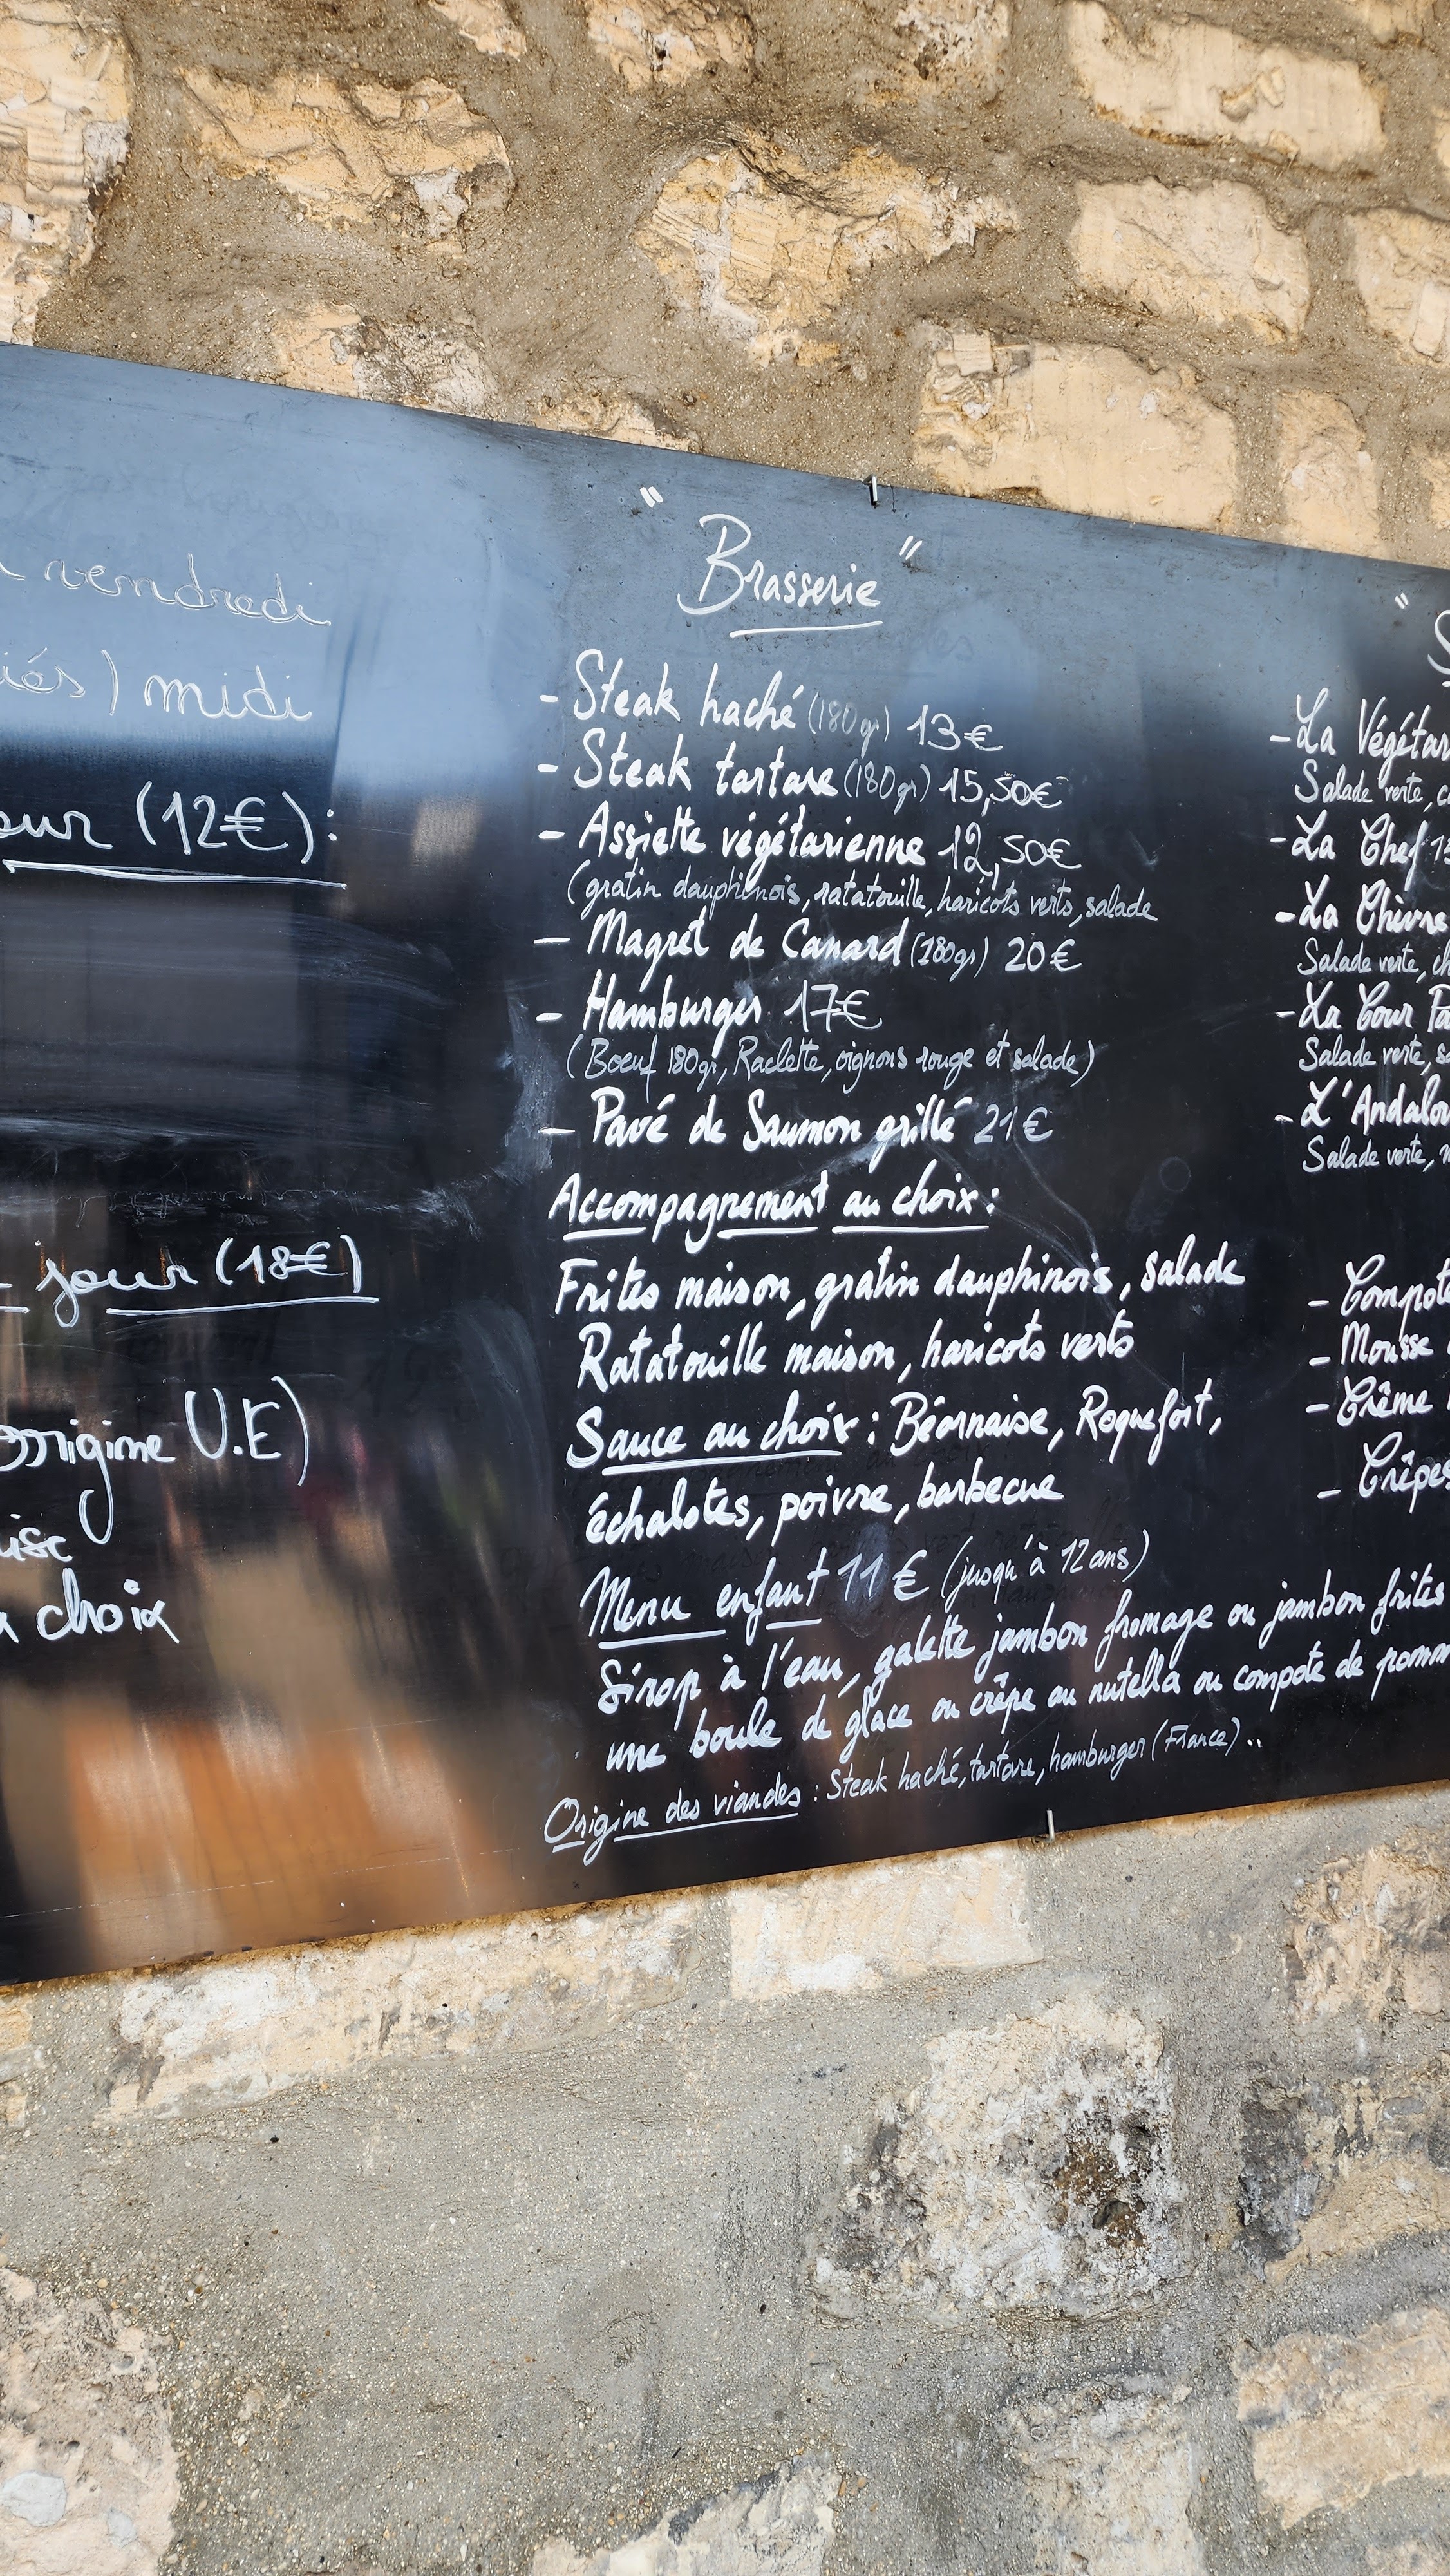 vendredi
iés) midi
our (12€):
jour (18€)
origine U.E)
choix
" Brasserie "
- Steak haché (180gr) 13€
- Steak tartare (180gr) 15,50€
- Assiette végétarienne 12,50€
(gratin dauphinois, ratatouille, haricots verts, salade
- Magret de Canard (180gr) 20€
- Hamburger 17€
(Boeuf 180gr, Raclette, oignons rouge et salade)
- Pavé de Saumon grillé 21€
Accompagnement au choix :
Frites maison, gratin dauphinois, salade
Ratatouille maison, haricots verts
Sauce au choix : Béarnaise, Roquefort,
échalotes, poivre, barbecue
Menu enfant 11€ (jusqu'à 12 ans)
Sirop à l'eau, galette jambon fromage ou jambon frites
une boule de glace ou crêpe au nutella ou compote de pomm
Origine des viandes : Steak haché, tartare, hamburger (France)..
" S
- La Végétar
Salade verte, c
- La Chef 1
- La Chèvre
Salade verte, ch
- La Cour Pa
Salade verte, s
- L'Andalo
Salade verte,
- Compote
- Mousse
- Crême
- Crêpes